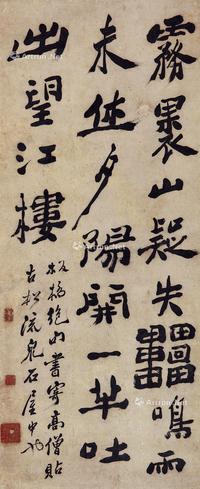 霧裹山疑失𤴐鳴雨
未休夕陽開一半吐
出望江樓
板橋絶句書寄高僧貼
古松流泉石屋中